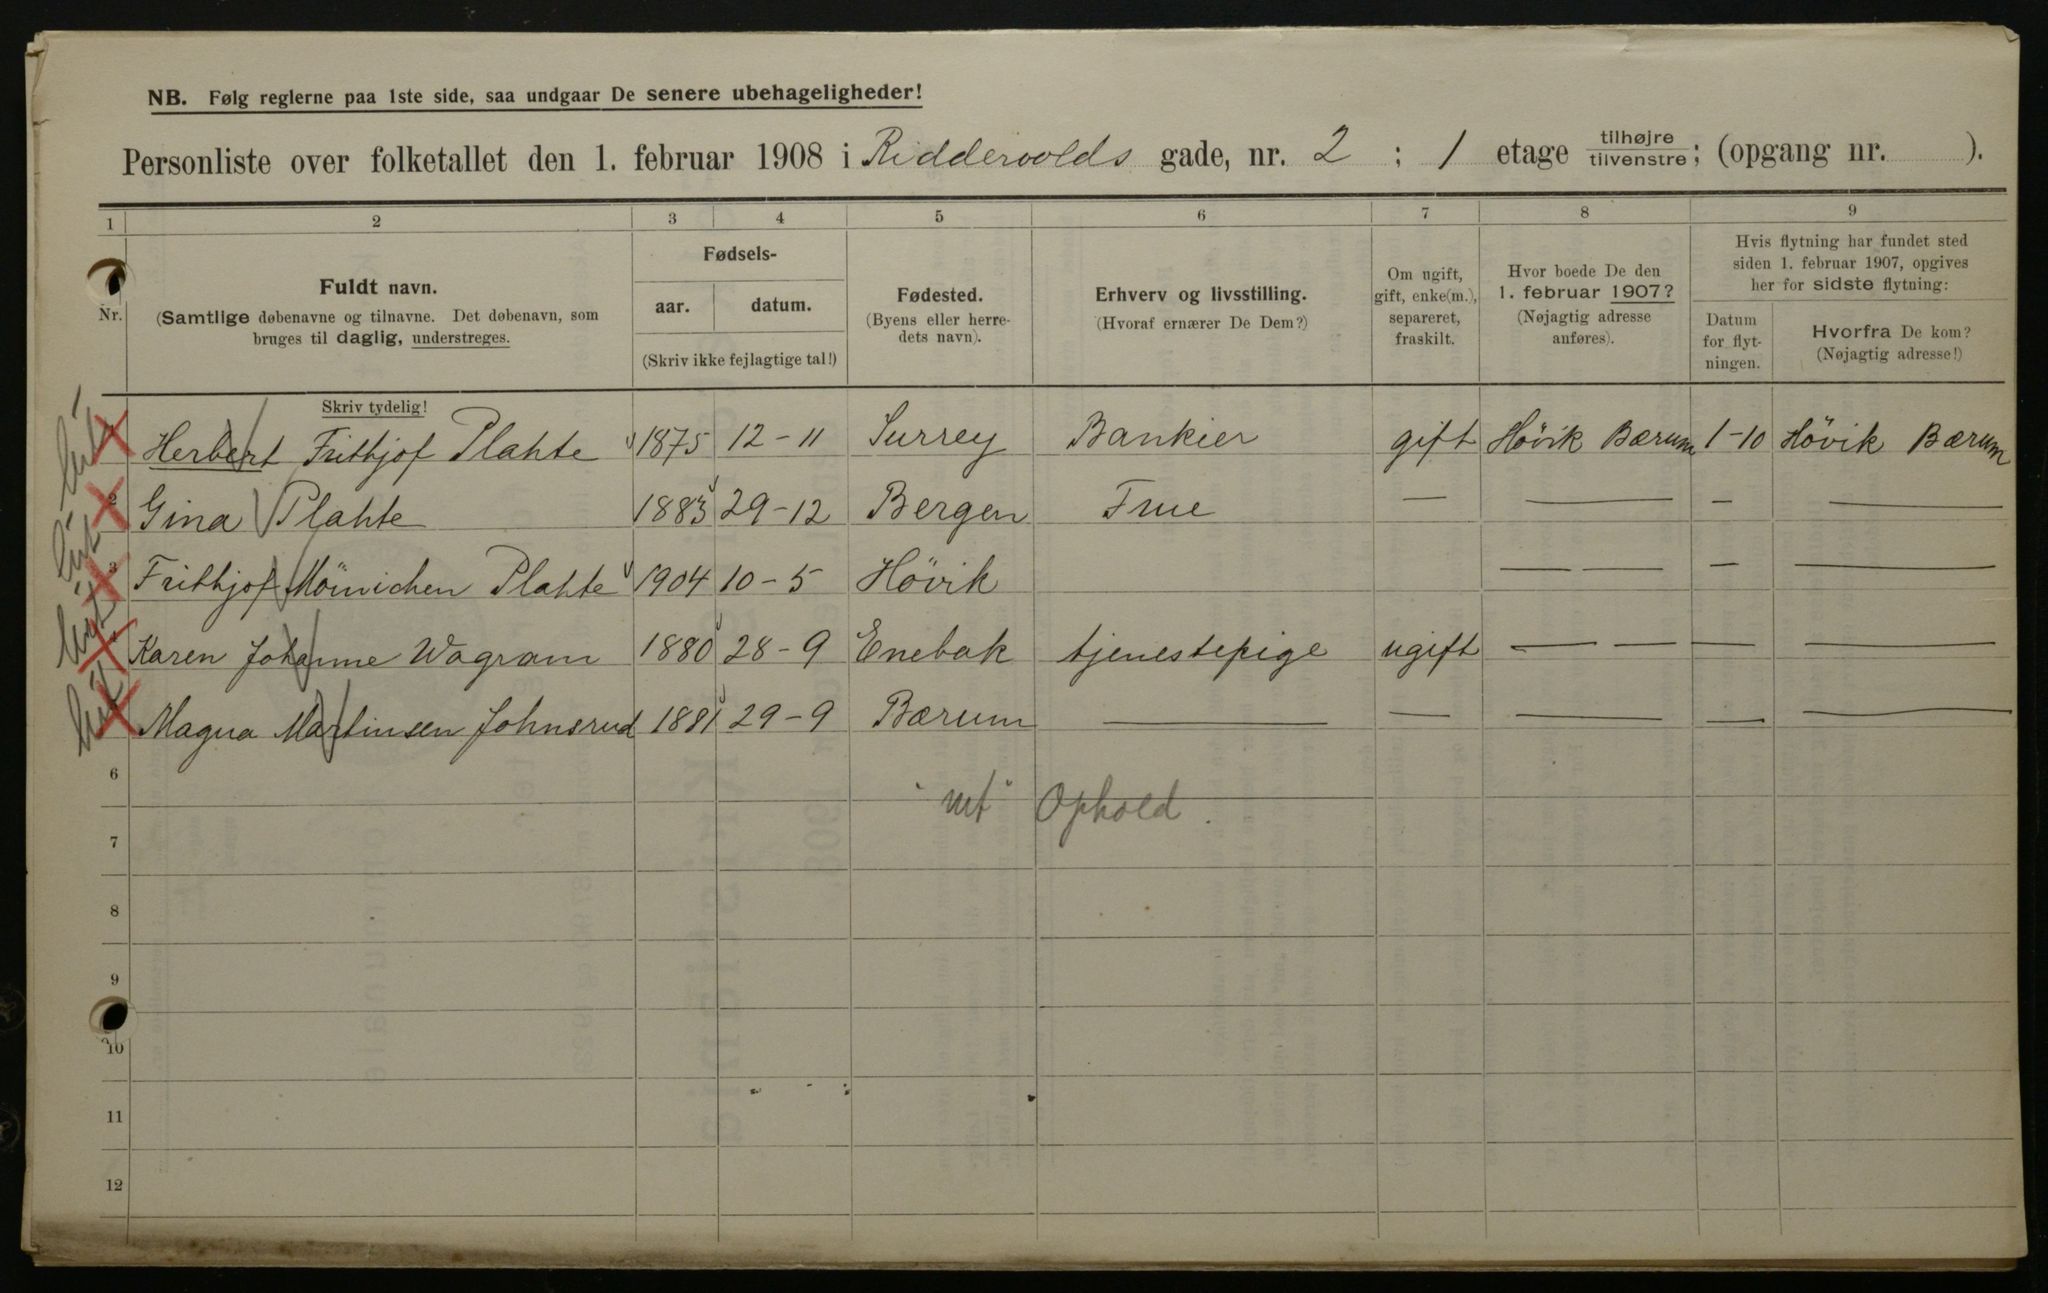 NB. Følg reglerne paa 1ste side, saa undgaar De senere ubehageligheder!
Personliste over folketallet den 1. februar 1908 i Riddervolds gade, nr. 2 ; 1 etage tilhøjre tilvenstre; (opgang nr. ).
1 2 3 4 5 6 7 8 9
Nr.
Fuldt navn.
(Samtlige døbenavne og tilnavne. Det døbenavn, som
bruges til daglig, understreges.
Skriv tydelig!
Fødsels-
aar. datum.
(Skriv ikke fejlagtige tal!)
Fødested.
(Byens eller herre-
dets navn).
Erhverv og livsstilling.
(Hvoraf ernærer De Dem?)
Om ugift,
gift, enke(m.),
separeret,
fraskilt.
Hvor boede De den
1. februar 1907?
(Nøjagtig adresse
anføres).
Hvis flytning har fundet sted
siden 1. februar 1907, opgives
her for sidste flytning:
Datum
for flyt-
ningen.
Hvorfra De kom?
(Nøjagtig adresse!)
1 Herbert Frithjof Plahte 1875 12-11 Surrey Bankier gift Hövik Bærum 1-10 Hövik Bærum
2 Gina Plahte 1883 29-12 Bergen Frue — — - —
3 Frithjof Möinichen Plahte 1904 10-5 Hövik — — - —
4 Karen Johanne Wagram 1880 28-9 Enebak tjenestepige ugift — — — —
5 Magna Martinsen Johnsrud 1881 29-9 Bærum — — — — —
6
Ophold.
7
8
9
10
11
12